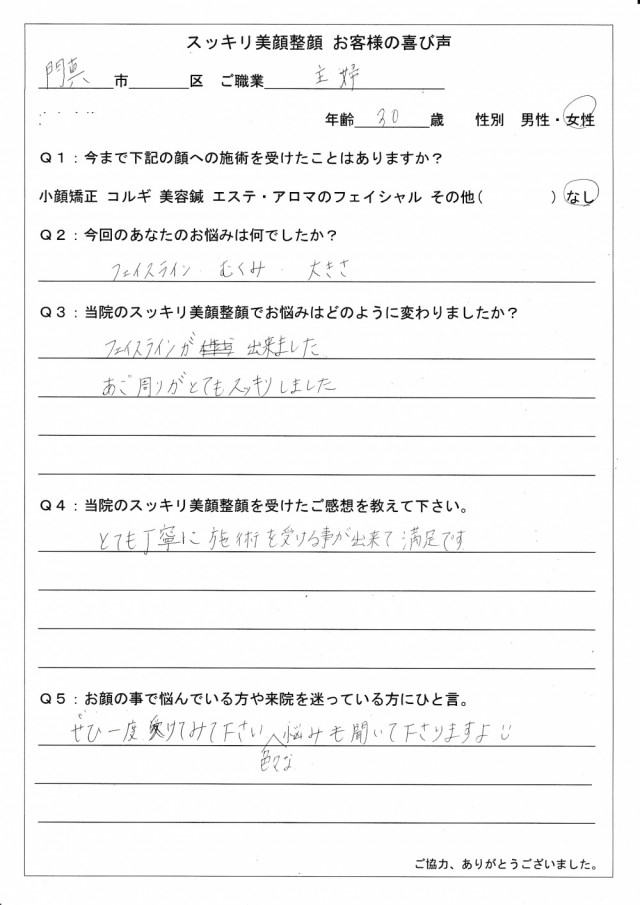 スッキリ美顔整顔 お客様の喜び声
門真 市 区 ご職業 主婦
年齢 30 歳 性別 男性・女性
Q1:今まで下記の顔への施術を受けたことはありますか?
小顔矯正 コルギ 美容鍼 エステ・アロマのフェイシャル その他( ) なし
Q2:今回のあなたのお悩みは何でしたか?
フェイスライン . むくみ . 大きさ
Q3:当院のスッキリ美顔整顔でお悩みはどのように変わりましたか?
フェイスラインが 出来ました
あご周りがとてもスッキリしました
Q4:当院のスッキリ美顔整顔を受けたご感想を教えて下さい。
とても丁寧に施術を受ける事が出来て満足です
Q5:お顔の事で悩んでいる方や来院を迷っている方にひと言。
ぜひ一度受けてみて下さい 悩みも聞いて下さりますよ
色々な
ご協力、ありがとうございました。